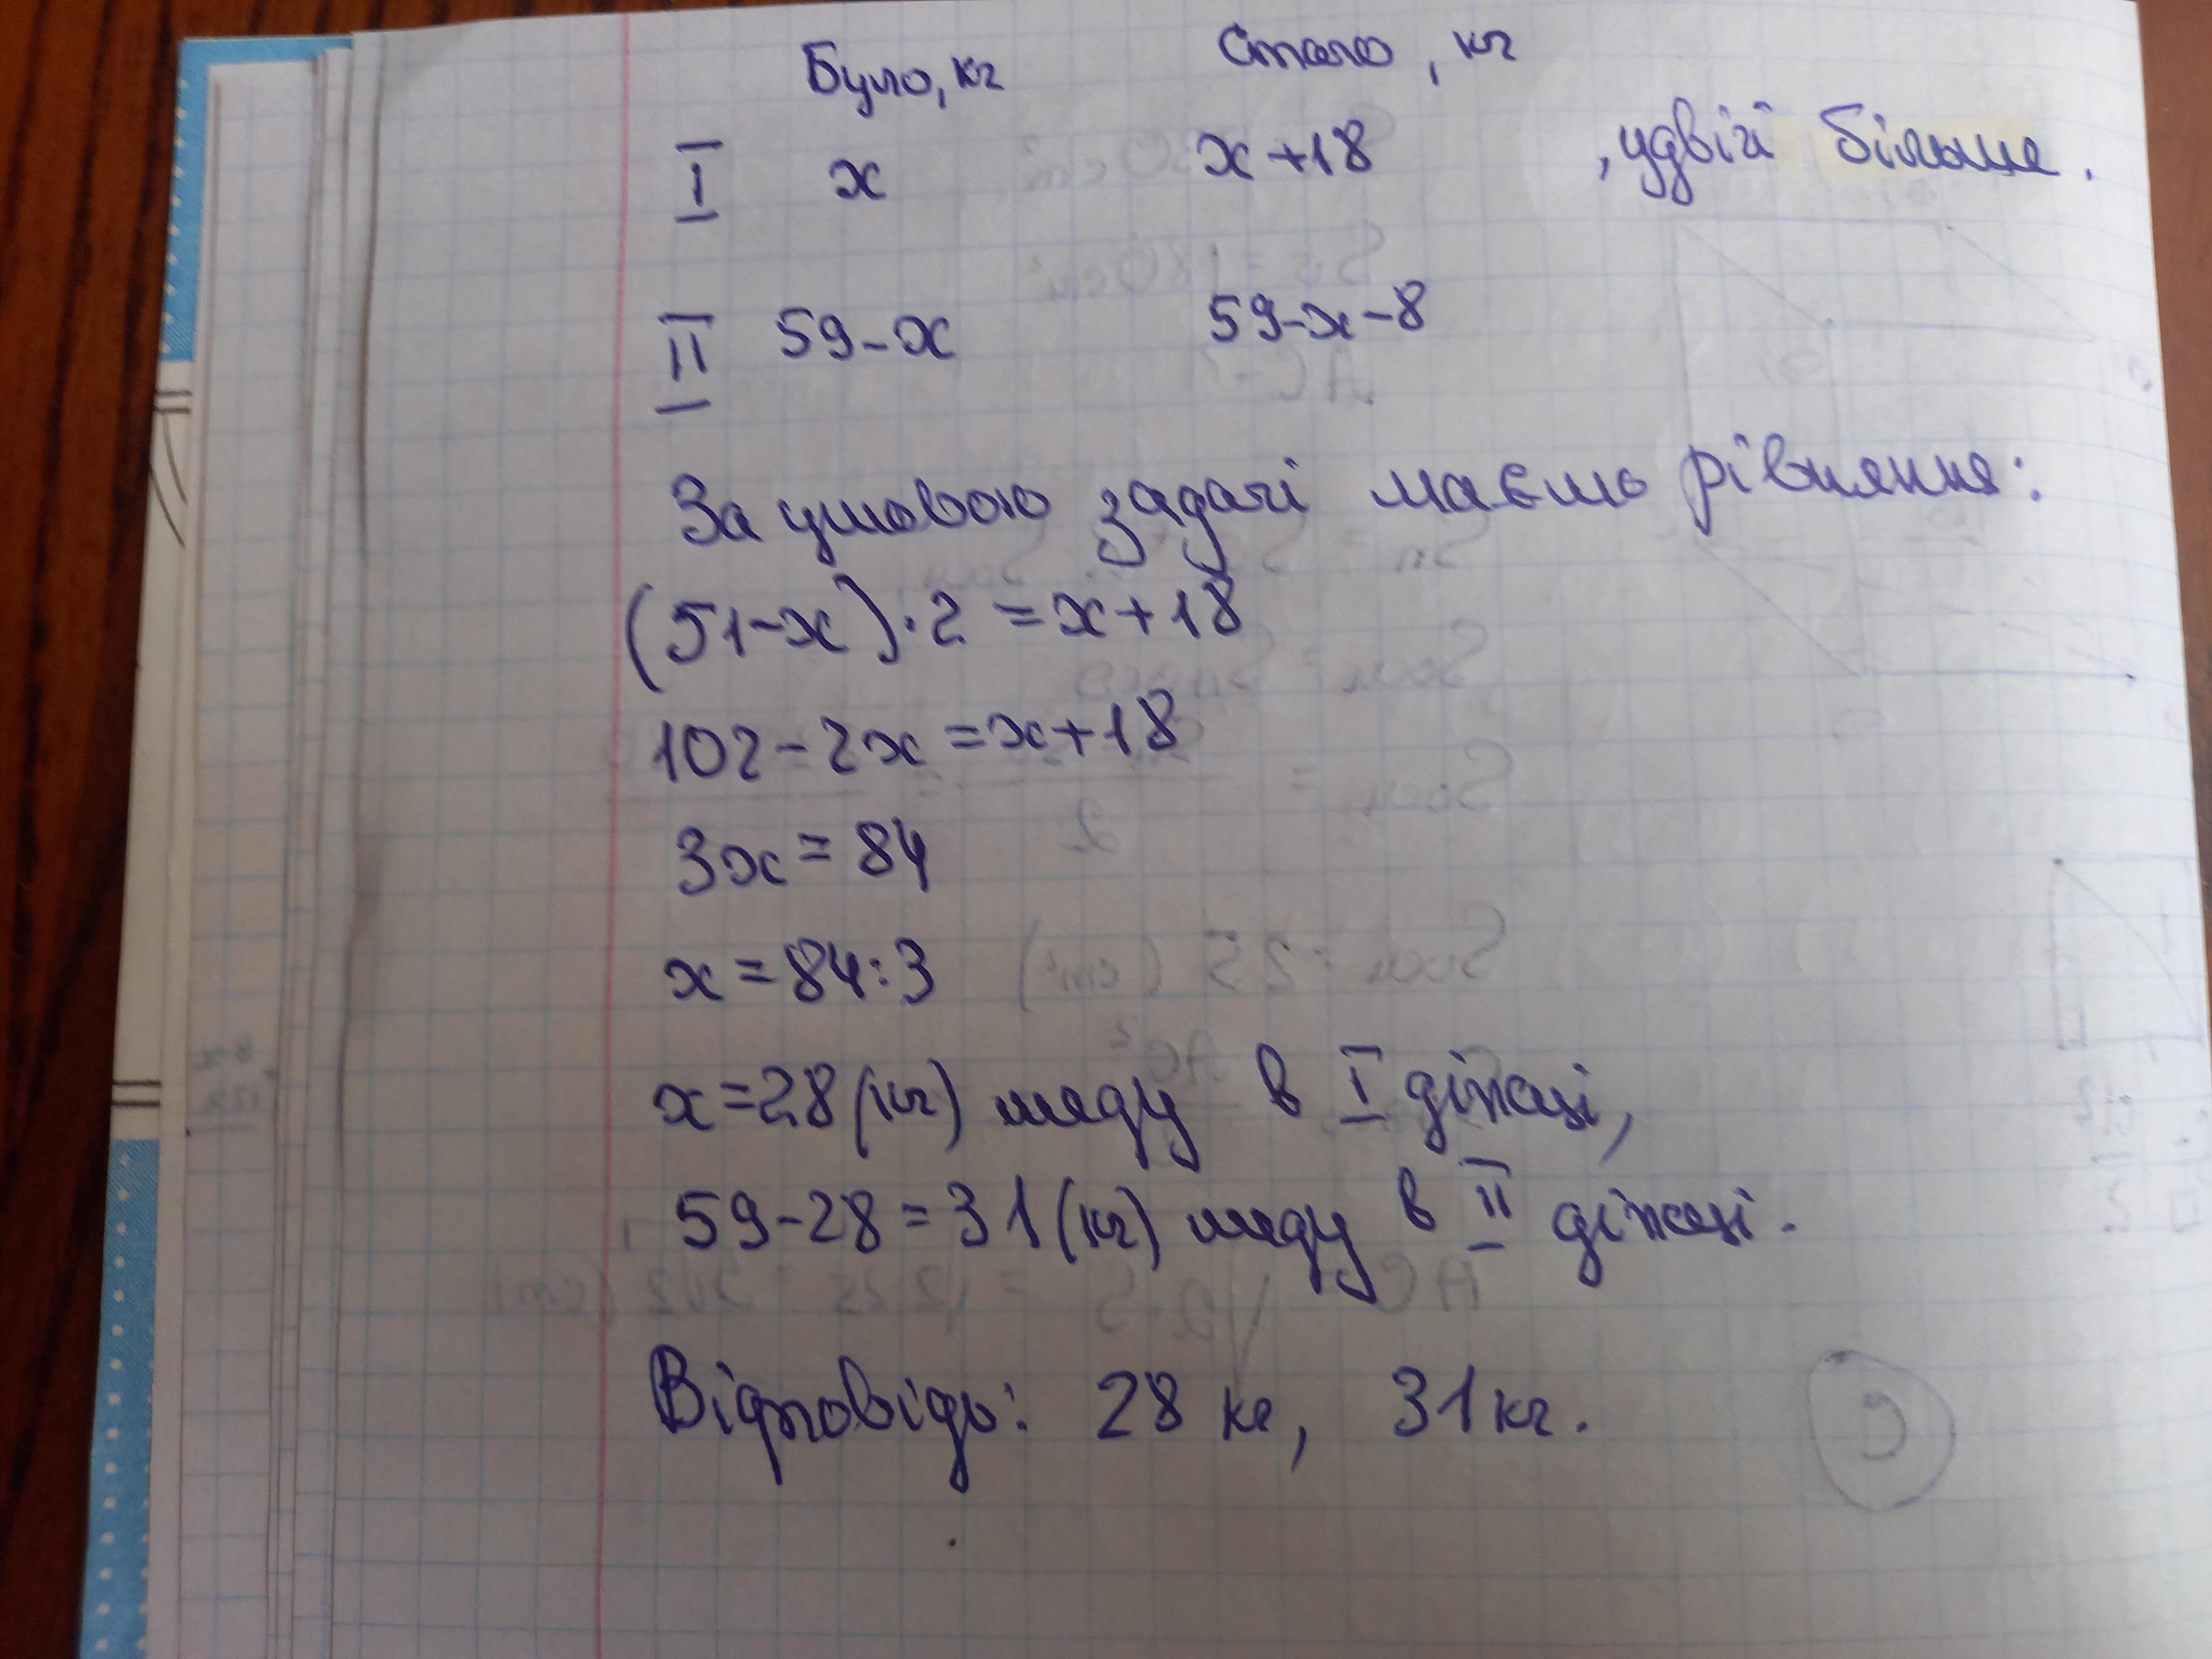 Було, кг Стало, кг
I x x+18 , удвічі більше.
II 59-x 59-x-8
За умовою задачі маємо рівняння:
(51-x)·2=x+18
102-2x=x+18
3x=84
x=84:3
x=28(кг) меду в I діжці,
59-28=31(кг) меду в II діжці.
Відповідь: 28 кг, 31кг.